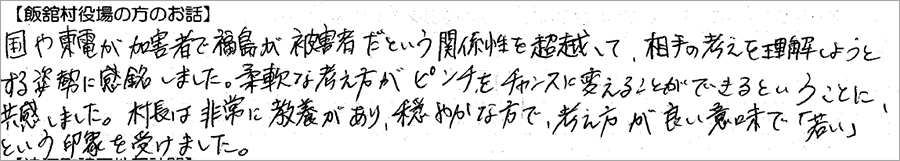 【飯舘村役場の方のお話】
国や東電が加害者で福島が被害者だという関係性を超越して、相手の考えを理解しようと
する姿勢に感銘しました。柔軟な考え方がピンチをチャンスに変えることができるということに、
共感しました。村長は非常に教養があり、穏やかな方で、考え方が良い意味で「若い」
という印象を受けました。